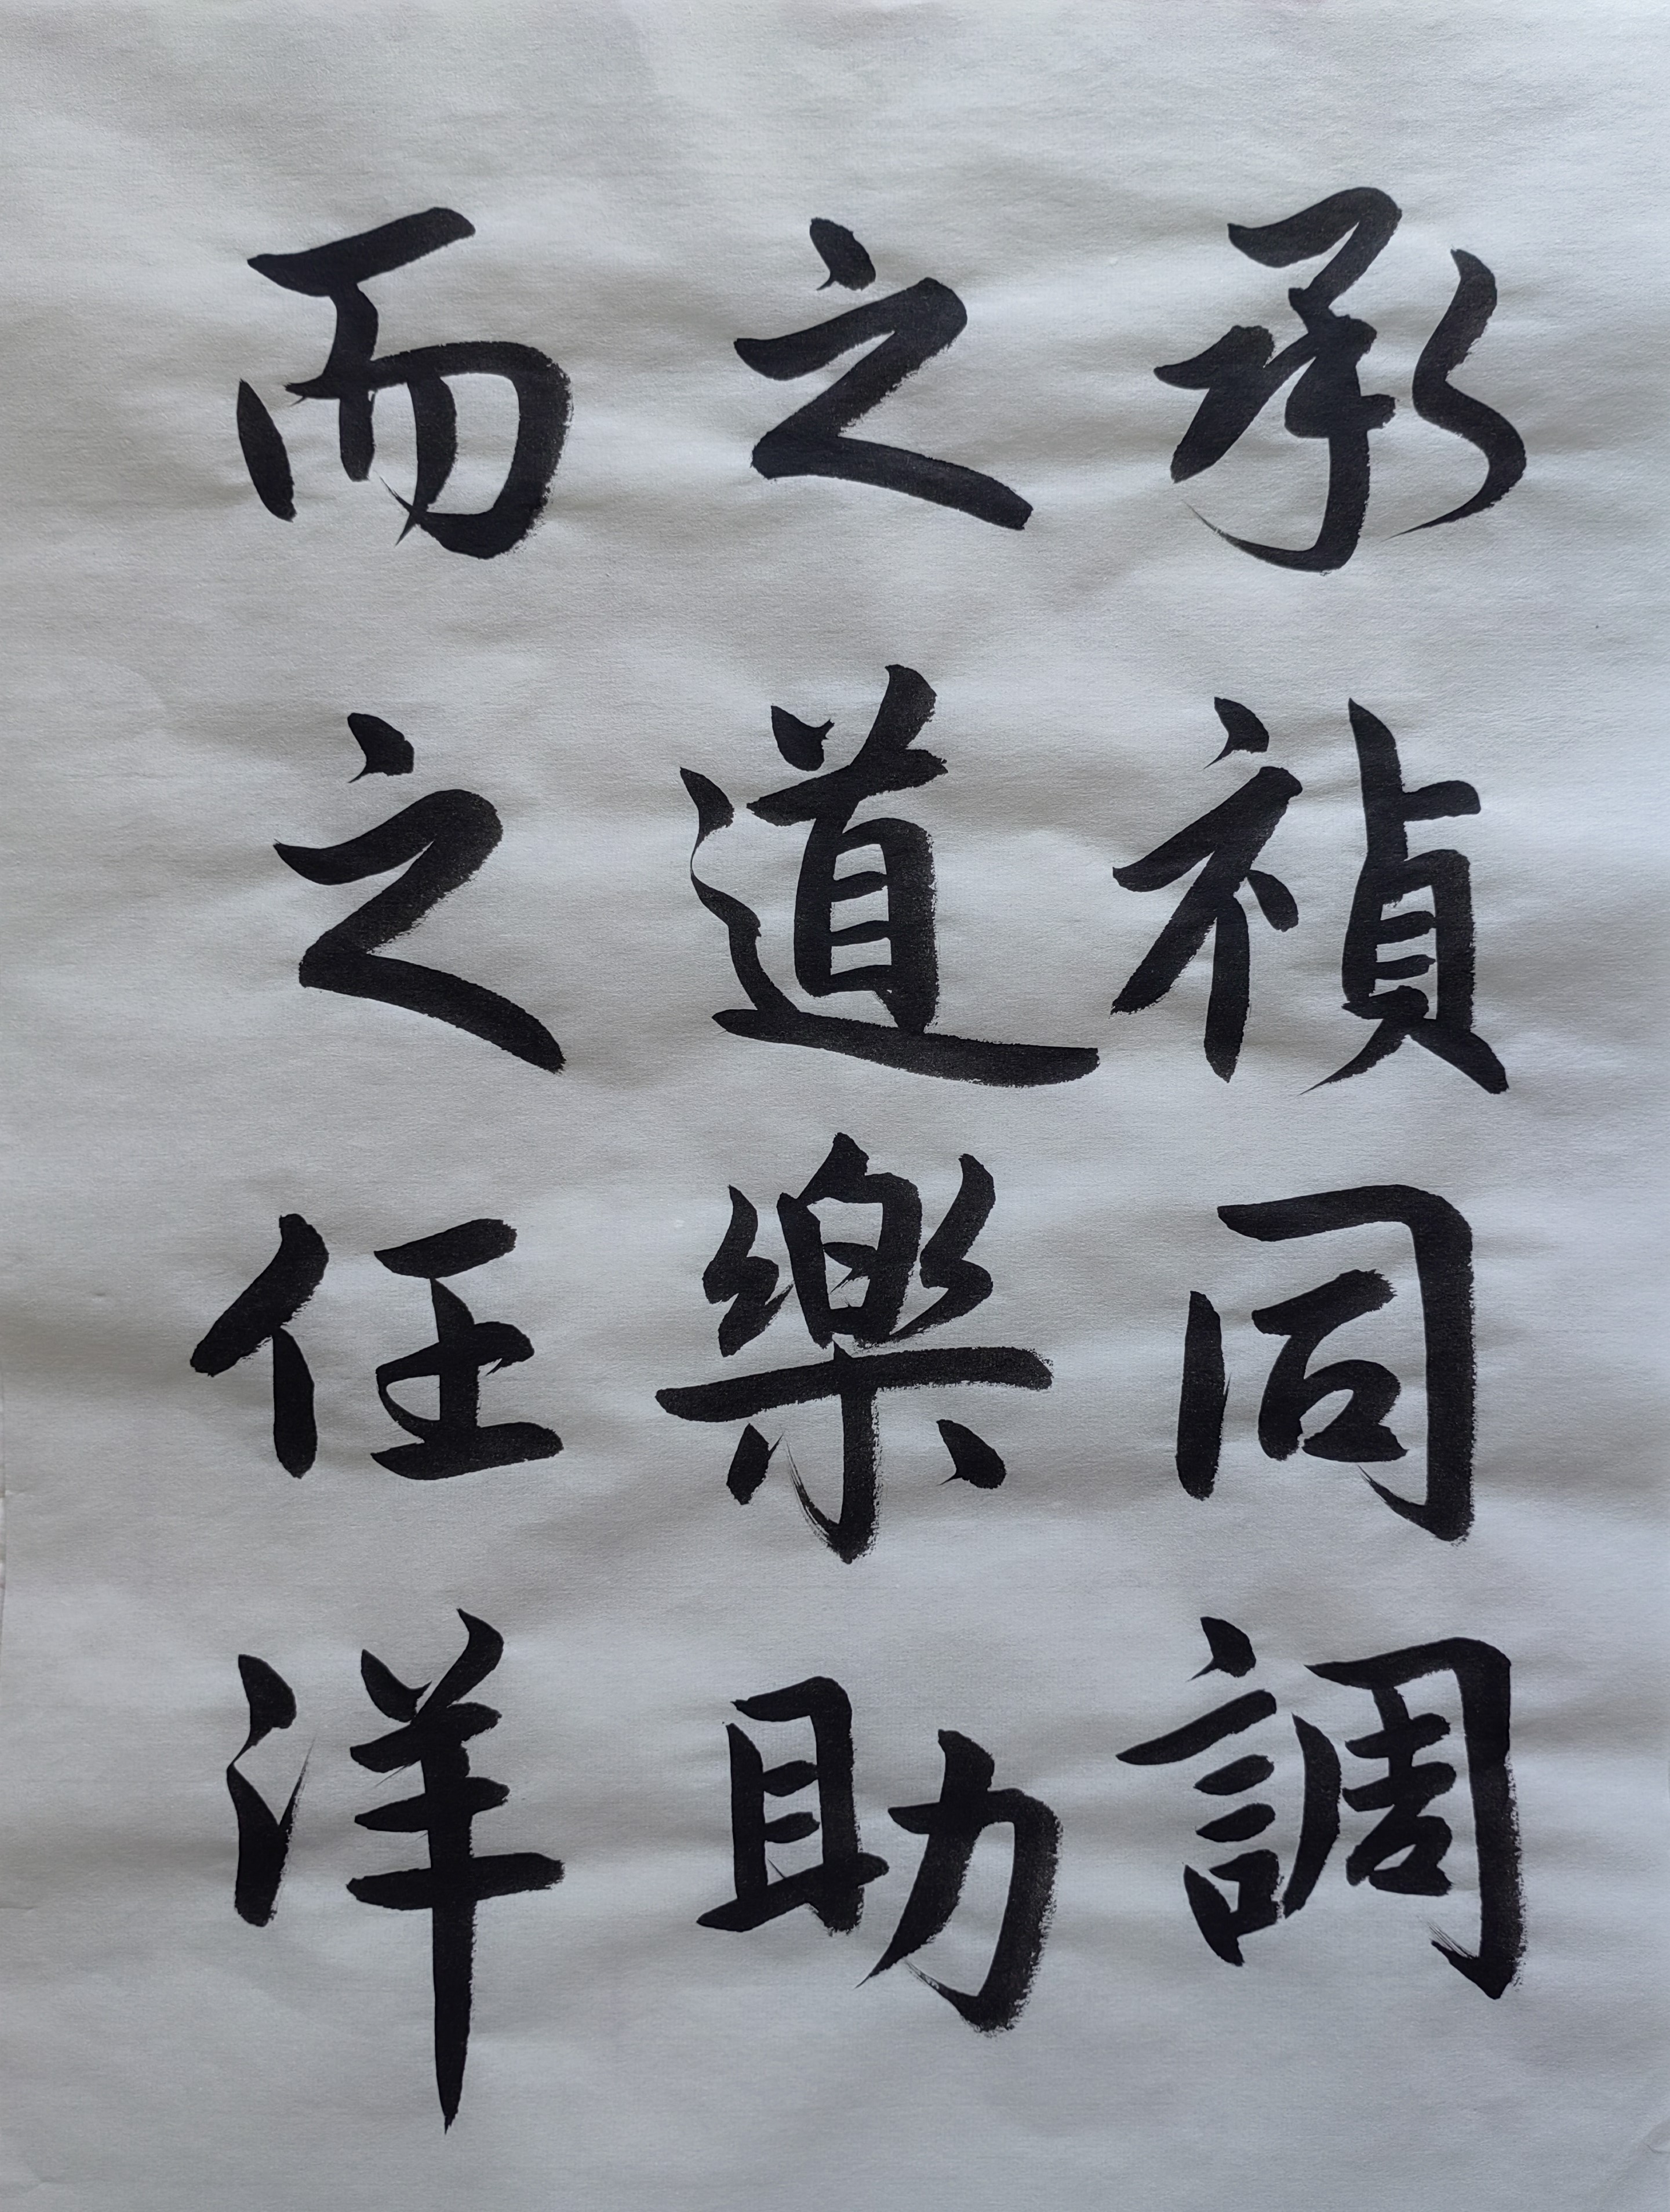 承禎同調
之道樂助
而之任洋